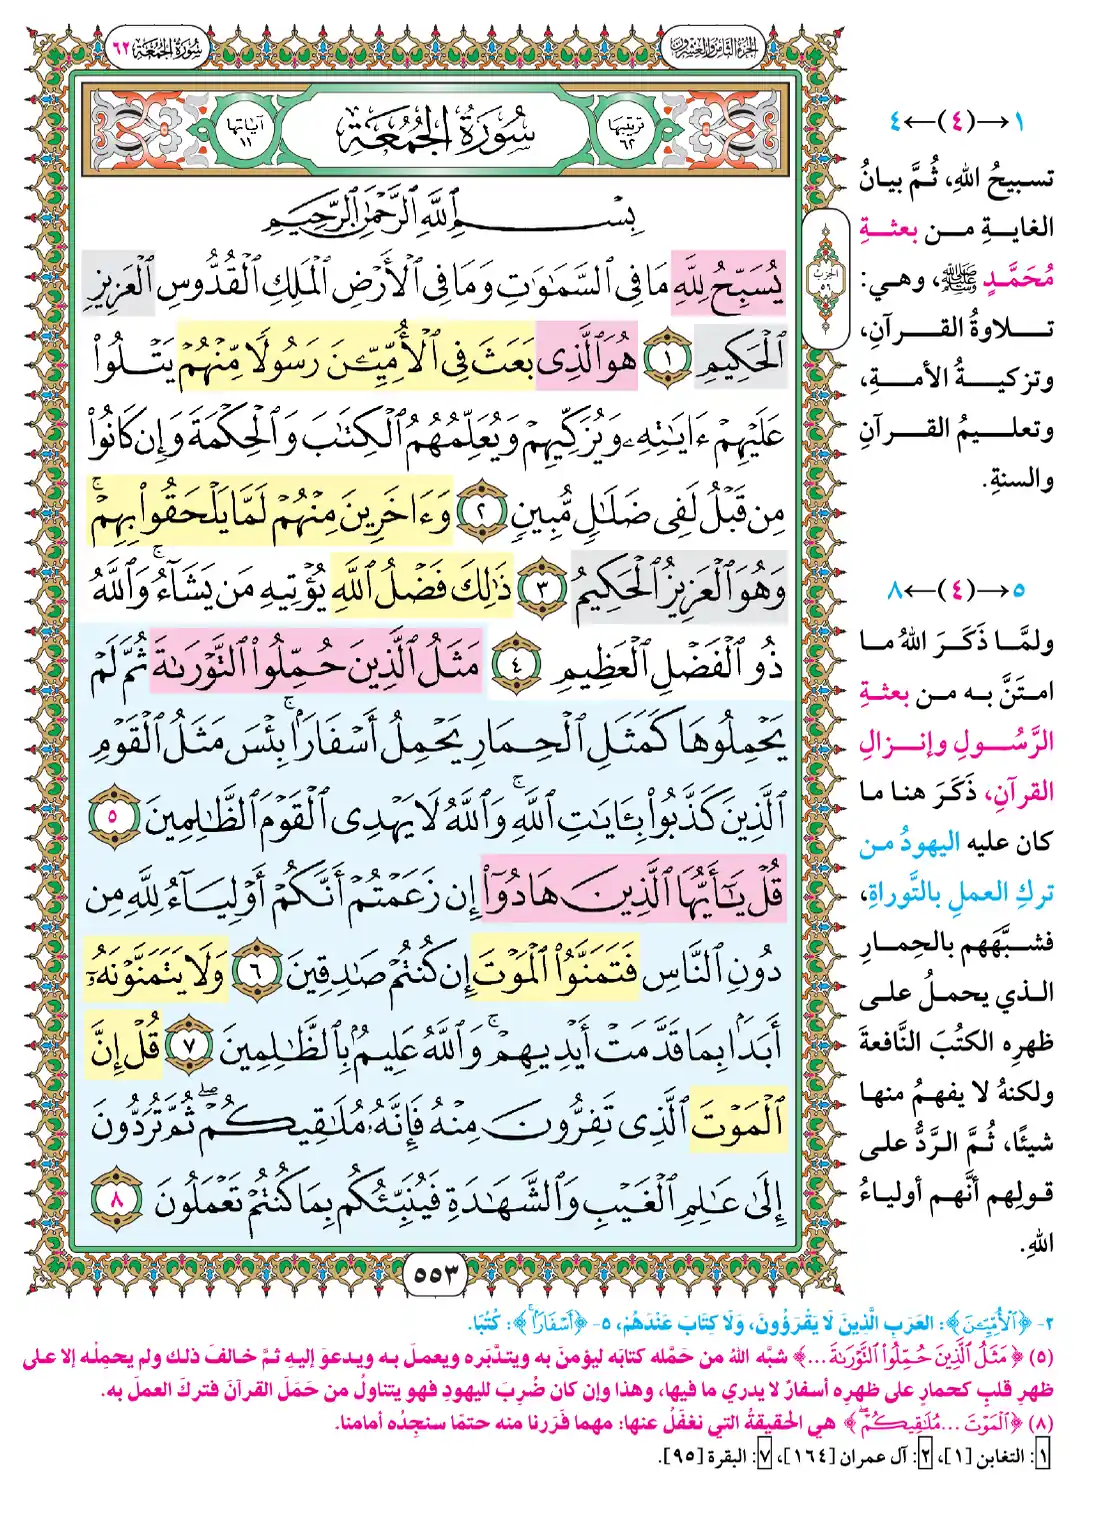 الجزء الثامن والعشرون
سورة الجمعة ٦٢
ترتيبها
٦٢
سُورَةُ الجُمُعَةِ
آياتها
١١
بِسۡمِ ٱللَّهِ ٱلرَّحۡمَٰنِ ٱلرَّحِيمِ
يُسَبِّحُ لِلَّهِ مَا فِي ٱلسَّمَٰوَٰتِ وَمَا فِي ٱلۡأَرۡضِ ٱلۡمَلِكِ ٱلۡقُدُّوسِ ٱلۡعَزِيزِ
ٱلۡحَكِيمِ ١ هُوَ ٱلَّذِي بَعَثَ فِي ٱلۡأُمِّيِّـۧنَ رَسُولٗا مِّنۡهُمۡ يَتۡلُواْ
عَلَيۡهِمۡ ءَايَٰتِهِۦ وَيُزَكِّيهِمۡ وَيُعَلِّمُهُمُ ٱلۡكِتَٰبَ وَٱلۡحِكۡمَةَ وَإِن كَانُواْ
مِن قَبۡلُ لَفِي ضَلَٰلٖ مُّبِينٖ ٢ وَءَاخَرِينَ مِنۡهُمۡ لَمَّا يَلۡحَقُواْ بِهِمۡۚ
وَهُوَ ٱلۡعَزِيزُ ٱلۡحَكِيمُ ٣ ذَٰلِكَ فَضۡلُ ٱللَّهِ يُؤۡتِيهِ مَن يَشَآءُۚ وَٱللَّهُ
ذُو ٱلۡفَضۡلِ ٱلۡعَظِيمِ ٤ مَثَلُ ٱلَّذِينَ حُمِّلُواْ ٱلتَّوۡرَىٰةَ ثُمَّ لَمۡ
يَحۡمِلُوهَا كَمَثَلِ ٱلۡحِمَارِ يَحۡمِلُ أَسۡفَارَۢاۚ بِئۡسَ مَثَلُ ٱلۡقَوۡمِ
ٱلَّذِينَ كَذَّبُواْ بِـَٔايَٰتِ ٱللَّهِۚ وَٱللَّهُ لَا يَهۡدِي ٱلۡقَوۡمَ ٱلظَّٰلِمِينَ ٥
قُلۡ يَٰٓأَيُّهَا ٱلَّذِينَ هَادُوٓاْ إِن زَعَمۡتُمۡ أَنَّكُمۡ أَوۡلِيَآءُ لِلَّهِ مِن
دُونِ ٱلنَّاسِ فَتَمَنَّوُاْ ٱلۡمَوۡتَ إِن كُنتُمۡ صَٰدِقِينَ ٦ وَلَا يَتَمَنَّوۡنَهُۥٓ
أَبَدَۢا بِمَا قَدَّمَتۡ أَيۡدِيهِمۡۚ وَٱللَّهُ عَلِيمُۢ بِٱلظَّٰلِمِينَ ٧ قُلۡ إِنَّ
ٱلۡمَوۡتَ ٱلَّذِي تَفِرُّونَ مِنۡهُ فَإِنَّهُۥ مُلَٰقِيكُمۡۖ ثُمَّ تُرَدُّونَ
إِلَىٰ عَٰلِمِ ٱلۡغَيۡبِ وَٱلشَّهَٰدَةِ فَيُنَبِّئُكُم بِمَا كُنتُمۡ تَعۡمَلُونَ ٨
٥٥٣
الحزب
٥٦
١→(٤)←٤
تسبيحُ اللهِ، ثُمَّ بيانُ
الغايةِ من بعثةِ
مُحَمَّدٍ ﷺ، وهي:
تلاوةُ القرآنِ،
وتزكيةُ الأمةِ،
وتعليمُ القرآنِ
والسنةِ.
٥→(٤)←٨
ولمَّا ذَكَرَ اللهُ ما
امتَنَّ به من بعثةِ
الرَّسُولِ وإنزالِ
القرآنِ، ذَكَرَ هنا ما
كان عليه اليهودُ من
تركِ العملِ بالتَّوراةِ،
فشبَّهَهم بالحِمارِ
الذي يحملُ على
ظهرِه الكتُبَ النَّافعةَ
ولكنهُ لا يفهمُ منها
شيئًا، ثُمَّ الرَّدُّ على
قولِهم أنَّهم أولياءُ
اللهِ.
٢- ﴿ٱلۡأُمِّيِّـۧنَ﴾: العَرَبِ الَّذِينَ لَا يَقْرَؤُونَ، وَلَا كِتَابَ عِنْدَهُمْ، ٥- ﴿أَسۡفَارَۢاۚ﴾: كُتُبًا.
(٥) ﴿مَثَلُ ٱلَّذِينَ حُمِّلُواْ ٱلتَّوۡرَىٰةَ ...﴾ شبَّه اللهُ من حَمَّله كتابَه ليؤمنَ به ويتدَّبره ويعملَ به ويدعوَ إليهِ ثمَّ خالفَ ذلكَ ولم يحمِلْه إلا على
ظهرِ قلبٍ كحمارٍ على ظهرِه أسفارٌ لا يدري ما فيها، وهذا وإن كان ضُرِبَ لليهودِ فهو يتناولُ من حَمَلَ القرآنَ فتركَ العملَ به.
(٨) ﴿ٱلۡمَوۡتَ ... مُلَٰقِيكُمۡۖ﴾ هي الحقيقةُ التي نغفَلُ عنها: مهما فَرَرنا منه حتمًا سنجِدُه أمامنا.
١: التغابن [١]، ٢: آل عمران [١٦٤]، ٧: البقرة [٩٥].